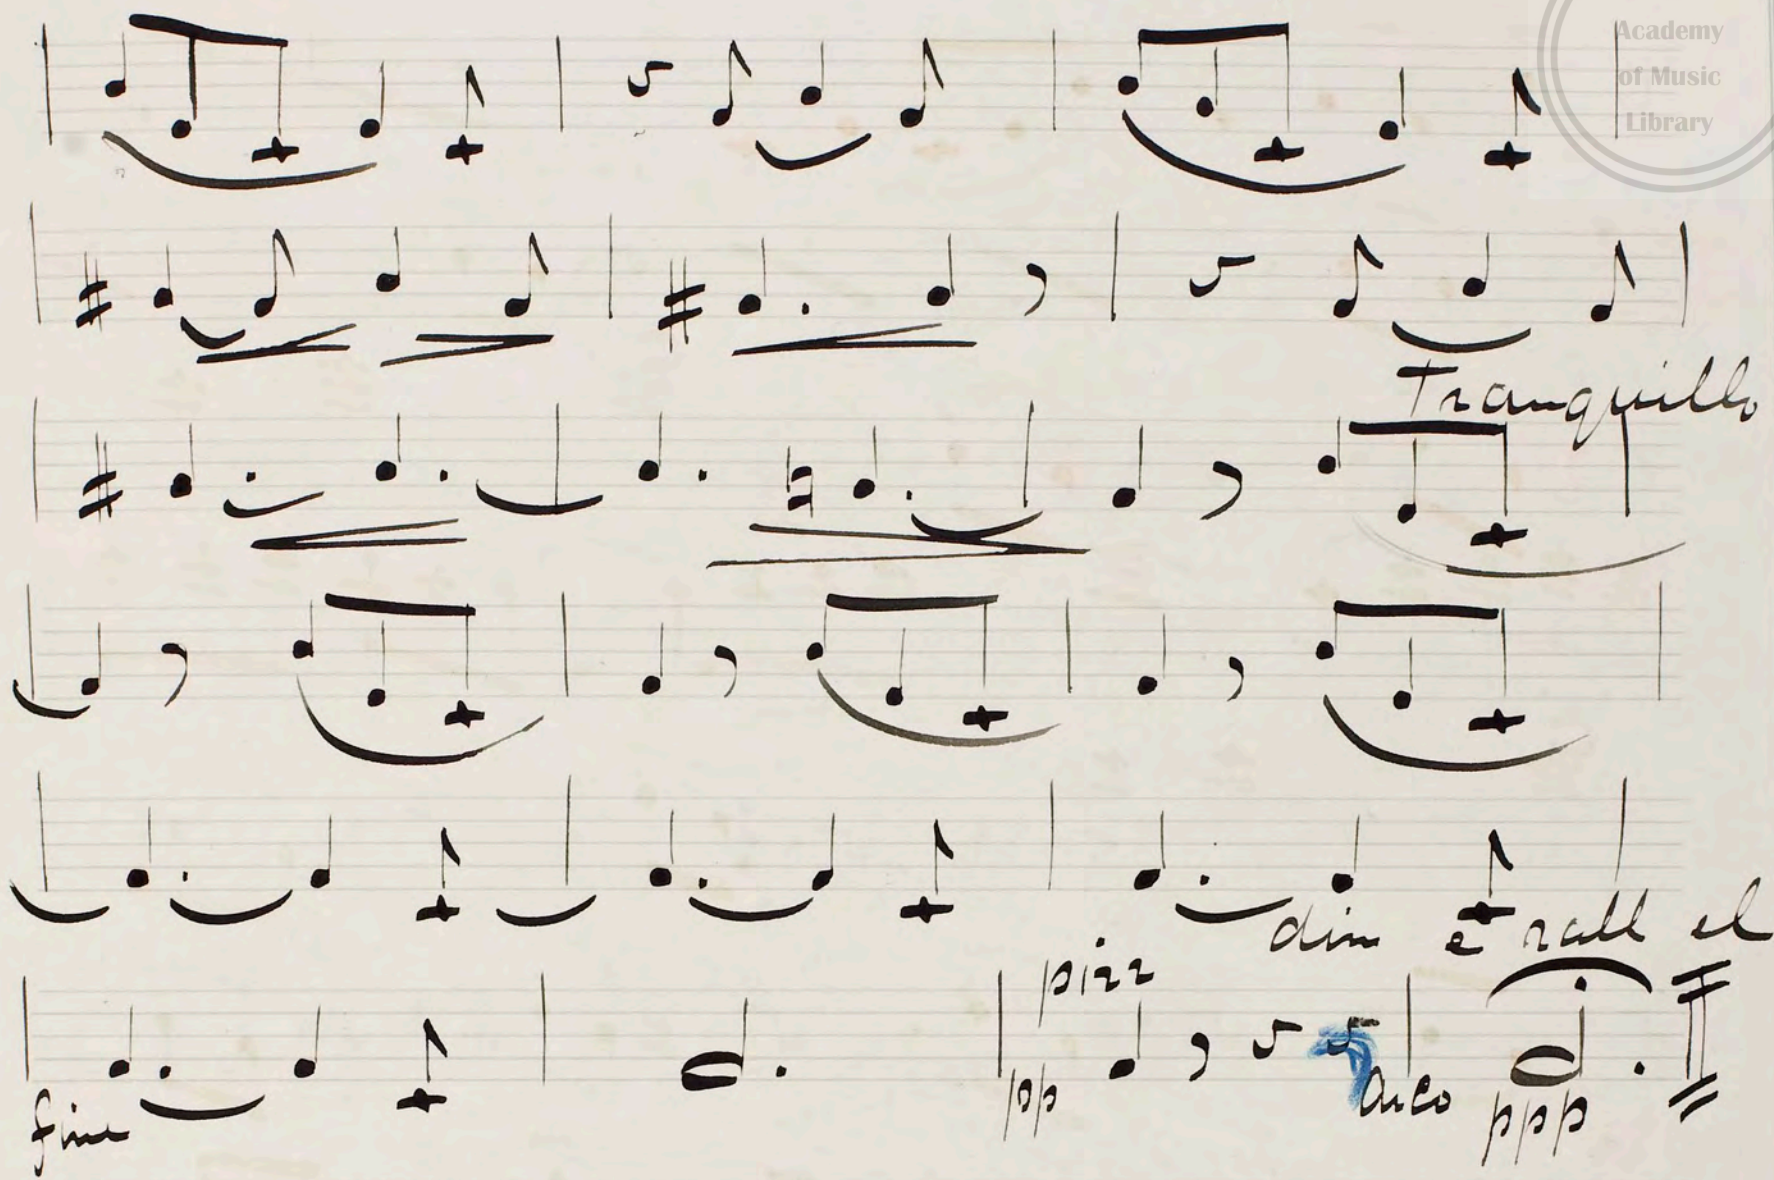 Academy
of Music
Library
Tranquillo
dim e rall el
pizz
fine
pp
arco
ppp